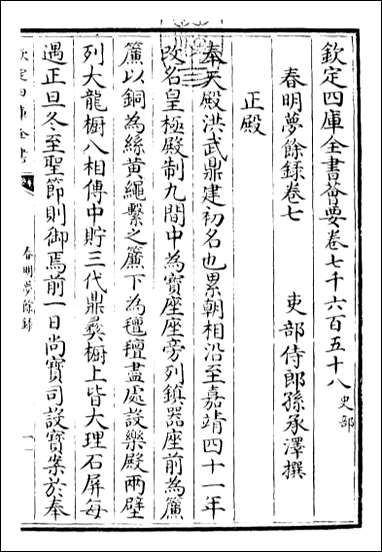 欽定四庫全書薈要卷七千六百五十八 史部
春明夢餘録卷七
吏部侍郎孫承澤撰
正殿
奉天殿洪武鼎建初名也累朝相沿至嘉靖四十一年
改名皇極殿制九間中為寶座座旁列鎮器座前為簾
簾以銅為絲黃繩繫之簾下為毯毯盡處設樂殿兩壁
列大龍櫥八相傳中貯三代鼎彝櫥上皆大理石屏每
遇正旦冬至聖節則御焉前一日尚寶司設寶案於奉
欽定四庫全書
春明夢餘録
一